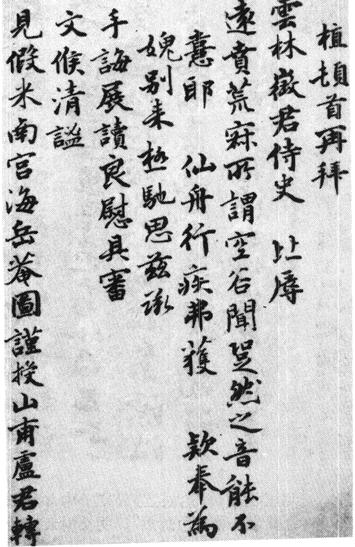 植頓首再拜
雲林徵君侍史　比辱
遠賁荒寂所謂空谷聞跫然之音能不
憙耶　仙舟行疾弗獲　欵奉為
媿別来極馳思茲承
手誨展讀良慰具審
文候清謐
見假米南宮海岳菴圖謹授山甫盧君轉